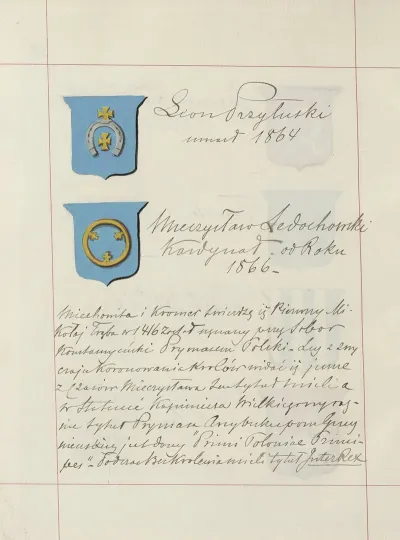 Leon Przyłuski
umarł 1864
Mieczysław Ledochowski
Kardynał od Roku
1866 –
Miechowita i Kromer twierdzą iż Pierwszy Mi-
kołaj Trąba w 1416 został uznany przez Sobor
Konstancyeński Prymasem Polski – Lecz z zwy
czaju Koronowania Królów widać iż
z czasów Mieczysława ten tytuł mieli a
w Statucie Kazimierza Wielkiego wyraź-
nie tytuł Prymasa Arcybiskupom Gnieź
nieńskim jest dany "Primi Poloniae Princi-
pes" – Podczas Bezkrolewia mieli tytuł InterRex